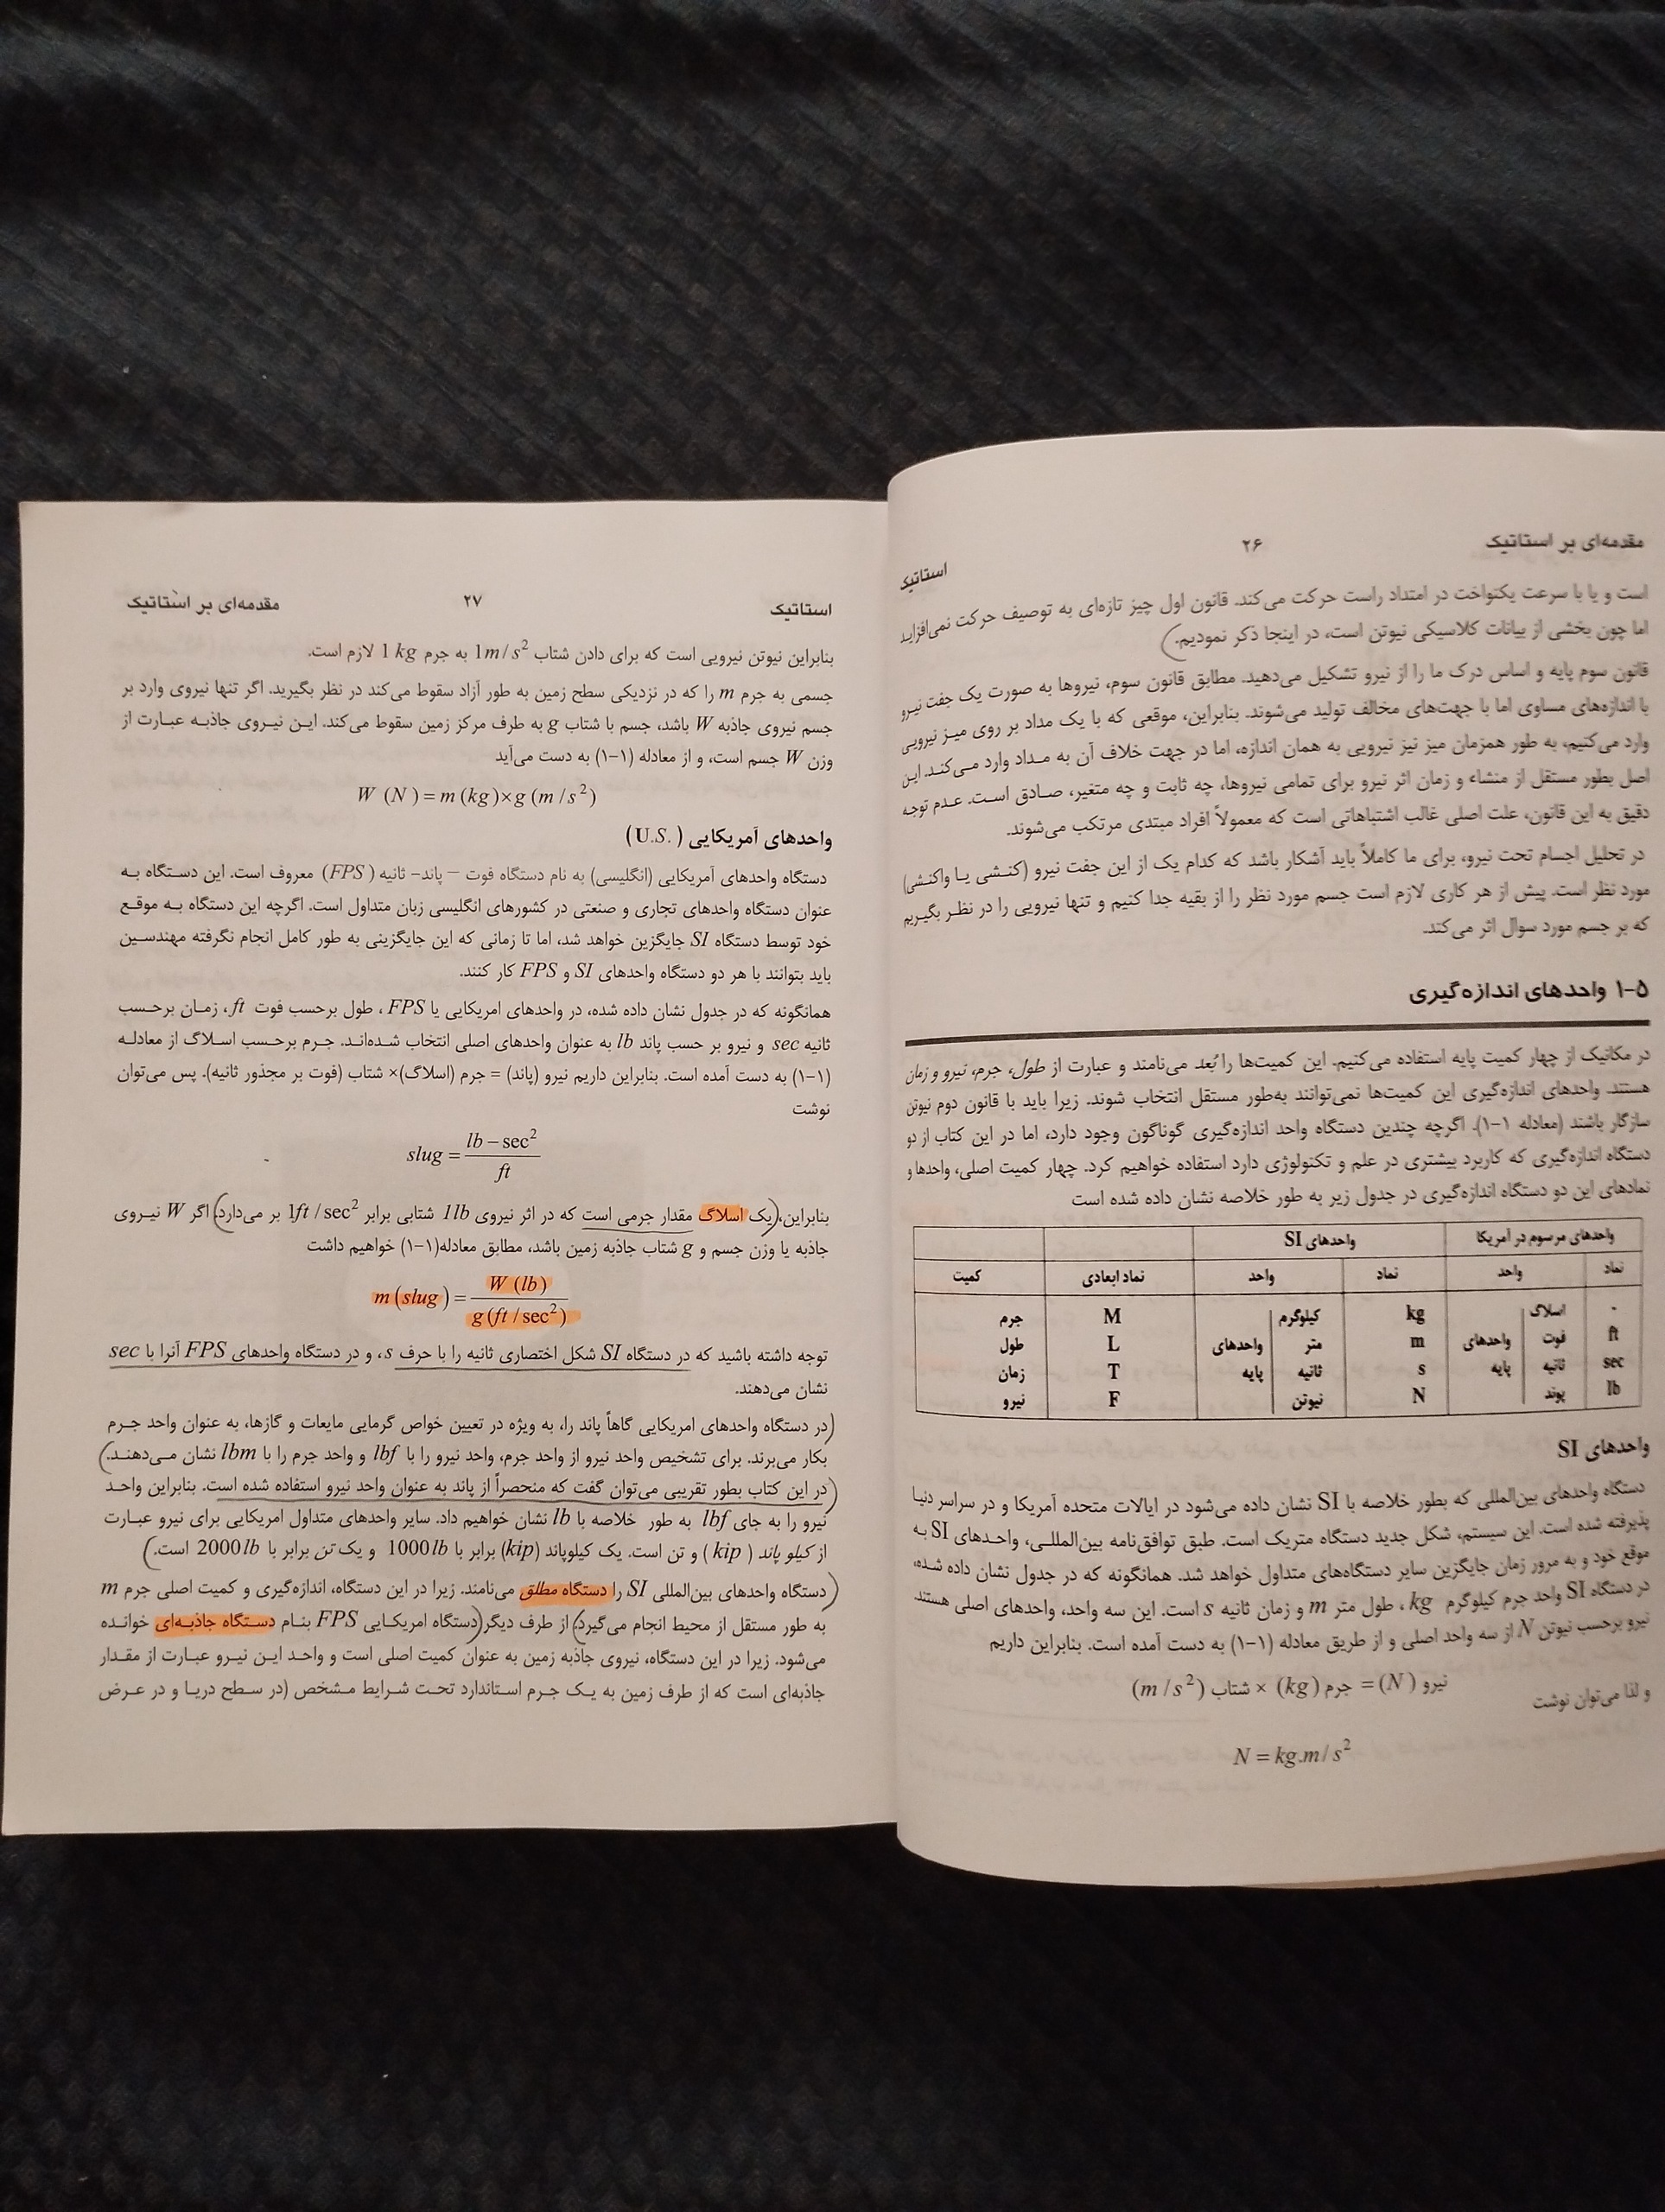 مقدمه‌ای بر استاتیک ۲۶ استاتیک
است و یا با سرعت یکنواخت در امتداد راست حرکت می‌کند. قانون اول چیز تازه‌ای به توصیف حرکت نمی‌افزاید
اما چون بخشی از بیانات کلاسیکی نیوتن است، در اینجا ذکر نمودیم.)
قانون سوم پایه و اساس درک ما را از نیرو تشکیل می‌دهید. مطابق قانون سوم، نیروها به صورت یک جفت نیرو
با اندازه‌های مساوی اما با جهت‌های مخالف تولید می‌شوند. بنابراین، موقعی که با یک مداد بر روی میز نیرویی
وارد می‌کنیم، به طور همزمان میز نیز نیرویی به همان اندازه، اما در جهت خلاف آن به مداد وارد می‌کند. این
اصل بطور مستقل از منشاء و زمان اثر نیرو برای تمامی نیروها، چه ثابت و چه متغیر، صادق است. عدم توجه
دقیق به این قانون، علت اصلی غالب اشتباهاتی است که معمولاً افراد مبتدی مرتکب می‌شوند.
در تحلیل اجسام تحت نیرو، برای ما کاملاً باید آشکار باشد که کدام یک از این جفت نیرو (کنشی یا واکنشی)
مورد نظر است. پیش از هر کاری لازم است جسم مورد نظر را از بقیه جدا کنیم و تنها نیرویی را در نظر بگیریم
که بر جسم مورد سوال اثر می‌کند.
۱-۵ واحدهای اندازه‌گیری
در مکانیک از چهار کمیت پایه استفاده می‌کنیم. این کمیت‌ها را بُعد می‌نامند و عبارت از طول، جرم، نیرو و زمان
هستند. واحدهای اندازه‌گیری این کمیت‌ها نمی‌توانند به‌طور مستقل انتخاب شوند. زیرا باید با قانون دوم نیوتن
سازگار باشند (معادله ۱-۱). اگرچه چندین دستگاه واحد اندازه‌گیری گوناگون وجود دارد، اما در این کتاب از دو
دستگاه اندازه‌گیری که کاربرد بیشتری در علم و تکنولوژی دارد استفاده خواهیم کرد. چهار کمیت اصلی، واحدها و
نمادهای این دو دستگاه اندازه‌گیری در جدول زیر به طور خلاصه نشان داده شده است
واحدهای مرسوم در آمریکا واحدهای SI
نماد واحد نماد واحد نماد ابعادی کمیت
- اسلاگ kg کیلوگرم M جرم
ft فوت واحدهای m متر واحدهای L طول
sec ثانیه پایه s ثانیه پایه T زمان
lb پوند N نیوتن F نیرو
واحدهای SI
دستگاه واحدهای بین‌المللی که بطور خلاصه با SI نشان داده می‌شود در ایالات متحده آمریکا و در سراسر دنیا
پذیرفته شده است. این سیستم، شکل جدید دستگاه متریک است. طبق توافق‌نامه بین‌المللی، واحدهای SI به
موقع خود و به مرور زمان جایگزین سایر دستگاه‌های متداول خواهد شد. همانگونه که در جدول نشان داده شده،
در دستگاه SI واحد جرم کیلوگرم kg، طول متر m و زمان ثانیه s است. این سه واحد، واحدهای اصلی هستند.
نیرو برحسب نیوتن N از سه واحد اصلی و از طریق معادله (۱-۱) به دست آمده است. بنابراین داریم
نیرو (N) = جرم (kg) × شتاب (m/s²)
و لذا می‌توان نوشت
N = kg.m/s²
استاتیک ۲۷ مقدمه‌ای بر استاتیک
بنابراین نیوتن نیرویی است که برای دادن شتاب 1m/s² به جرم 1 kg لازم است.
جسمی به جرم m را که در نزدیکی سطح زمین به طور آزاد سقوط می‌کند در نظر بگیرید. اگر تنها نیروی وارد بر
جسم نیروی جاذبه W باشد، جسم با شتاب g به طرف مرکز زمین سقوط می‌کند. این نیروی جاذبه عبارت از
وزن W جسم است، و از معادله (۱-۱) به دست می‌آید
W (N) = m (kg)×g (m/s²)
واحدهای آمریکایی (U.S.)
دستگاه واحدهای آمریکایی (انگلیسی) به نام دستگاه فوت – پاند- ثانیه (FPS) معروف است. این دستگاه به
عنوان دستگاه واحدهای تجاری و صنعتی در کشورهای انگلیسی زبان متداول است. اگرچه این دستگاه به موقع
خود توسط دستگاه SI جایگزین خواهد شد، اما تا زمانی که این جایگزینی به طور کامل انجام نگرفته مهندسین
باید بتوانند با هر دو دستگاه واحدهای SI و FPS کار کنند.
همانگونه که در جدول نشان داده شده، در واحدهای امریکایی یا FPS، طول برحسب فوت ft، زمان برحسب
ثانیه sec و نیرو بر حسب پاند lb به عنوان واحدهای اصلی انتخاب شده‌اند. جرم برحسب اسلاگ از معادله
(۱-۱) به دست آمده است. بنابراین داریم نیرو (پاند) = جرم (اسلاگ)× شتاب (فوت بر مجذور ثانیه). پس می‌توان
نوشت
slug = lb – sec² / ft
بنابراین، (یک اسلاگ مقدار جرمی است که در اثر نیروی 1lb شتابی برابر 1ft/sec² بر می‌دارد.) اگر W نیروی
جاذبه یا وزن جسم و g شتاب جاذبه زمین باشد، مطابق معادله(۱-۱) خواهیم داشت
m(slug) = W (lb) / g(ft/sec²)
توجه داشته باشید که در دستگاه SI شکل اختصاری ثانیه را با حرف s، و در دستگاه واحدهای FPS آنرا با sec
نشان می‌دهند.
(در دستگاه واحدهای امریکایی گاهاً پاند را، به ویژه در تعیین خواص گرمایی مایعات و گازها، به عنوان واحد جرم
بکار می‌برند. برای تشخیص واحد نیرو از واحد جرم، واحد نیرو را با lbf و واحد جرم را با lbm نشان می‌دهند.)
(در این کتاب بطور تقریبی می‌توان گفت که منحصراً از پاند به عنوان واحد نیرو استفاده شده است. بنابراین واحد
نیرو را به جای lbf به طور خلاصه با lb نشان خواهیم داد. سایر واحدهای متداول امریکایی برای نیرو عبارت
از کیلو پاند (kip) و تن است. یک کیلوپاند (kip) برابر با 1000lb و یک تن برابر با 2000lb است.)
(دستگاه واحدهای بین‌المللی SI را دستگاه مطلق می‌نامند. زیرا در این دستگاه، اندازه‌گیری و کمیت اصلی جرم m
به طور مستقل از محیط انجام می‌گیرد.) از طرف دیگر (دستگاه امریکایی FPS بنام دستگاه جاذبه‌ای خوانده
می‌شود. زیرا در این دستگاه، نیروی جاذبه زمین به عنوان کمیت اصلی است و واحد این نیرو عبارت از مقدار
جاذبه‌ای است که از طرف زمین به یک جرم استاندارد تحت شرایط مشخص (در سطح دریا و در عرض